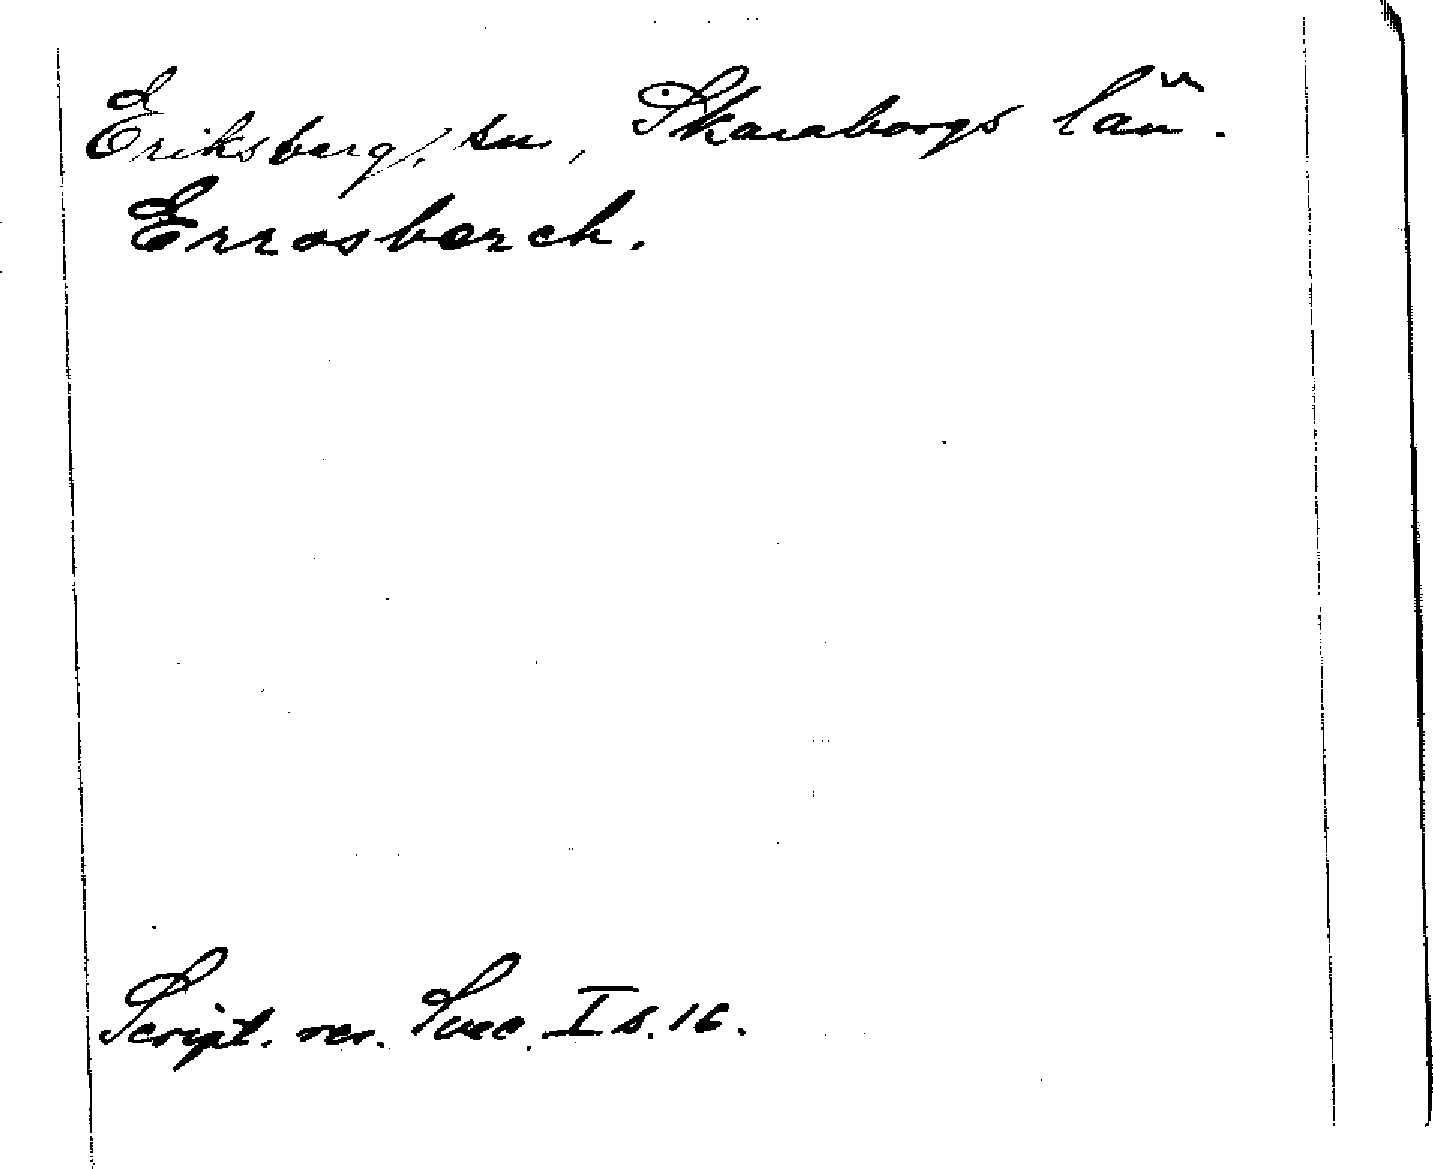 Eriksberg, sn, Skaraborgs län.
Errosberch.
Script. rer. Svec. I s. 16.